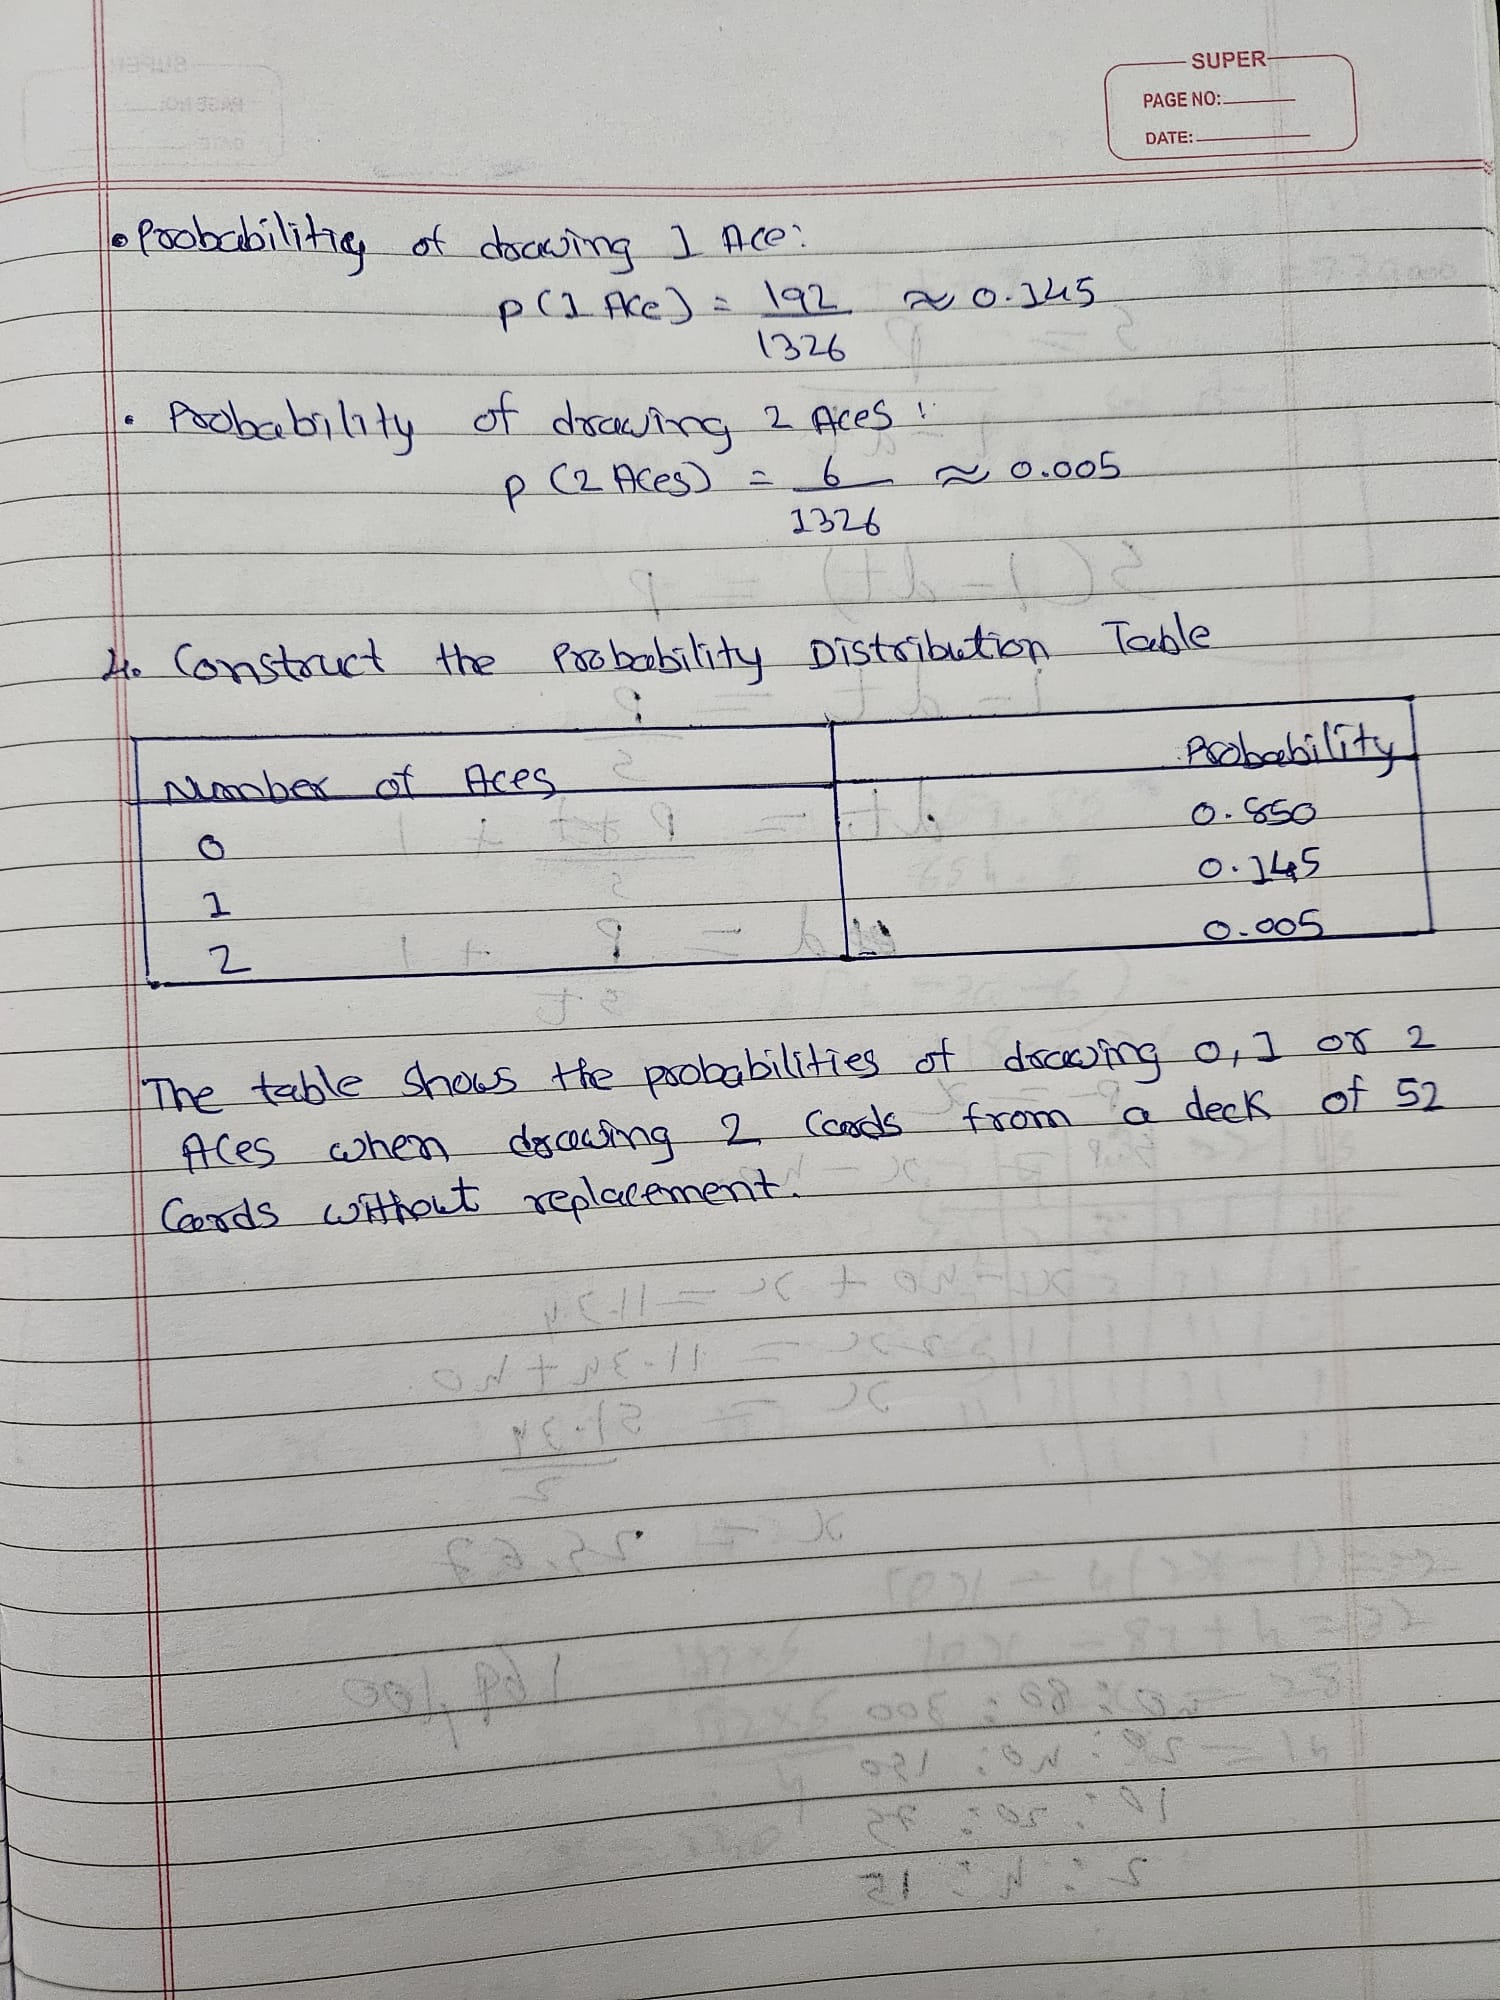 SUPER
PAGE NO:
DATE:
• Probabilities of drawing 1 Ace:
P(1 Ace) = 192/1326 ≈ 0.145
• Probability of drawing 2 Aces:
P (2 Aces) = 6/1326 ≈ 0.005
4. Construct the Probability Distribution Table
Number of Aces Probability
0 0.850
1 0.145
2 0.005
The table shows the probabilities of drawing 0, 1 or 2
Aces when drawing 2 Cards from a deck of 52
Cards without replacement.